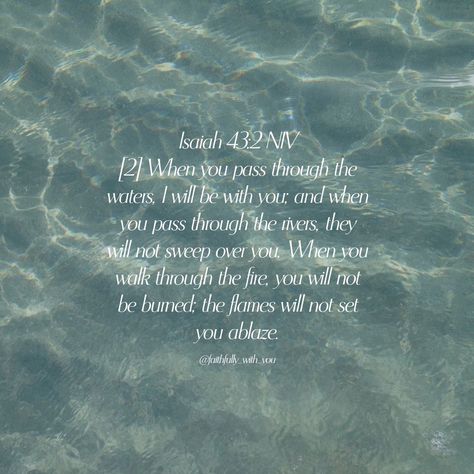 Isaiah 43:2 NIV
[2] When you pass through the
waters, I will be with you; and when
you pass through the rivers, they
will not sweep over you. When you
walk through the fire, you will not
be burned; the flames will not set
you ablaze.
@faithfully_with_you